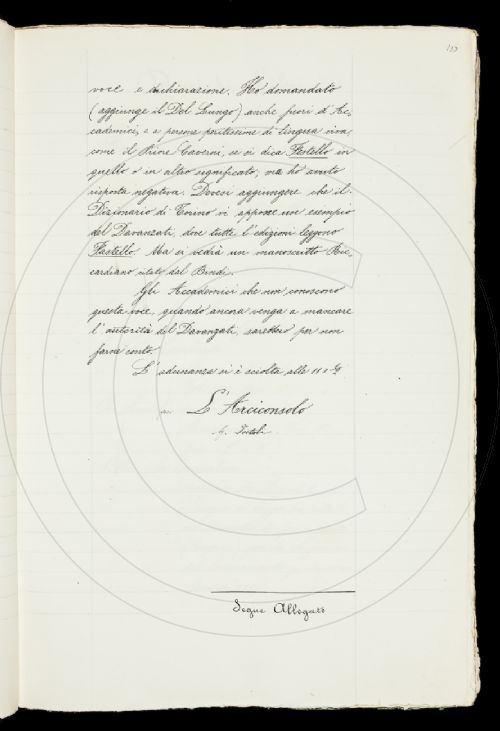 133
voce e dichiarazione. Ho domandato
(aggiunge il Del Lungo) anche fuori d'Ac-
cademici, e a persone peritissime di lingua viva
come il Priore Caverni, se si dica Fastello in
quello o in altro significato; ma ho avuto
risposta negativa. Devesi aggiungere che il
Dizionario di Torino vi appone un esempio
del Davanzati, dove tutte l'edizioni leggono
Fastello. Ma si vedrà un manoscritto Ric-
cardiano citato dal Bindi.
Gli Accademici che non conoscono
questa voce, quando ancora venga a mancare
l'autorità del Davanzati, sarebbero per non
farne conto.
L'adunanza si è sciolta alle 11 e
L'Arciconsolo
A.
Segue Allegato